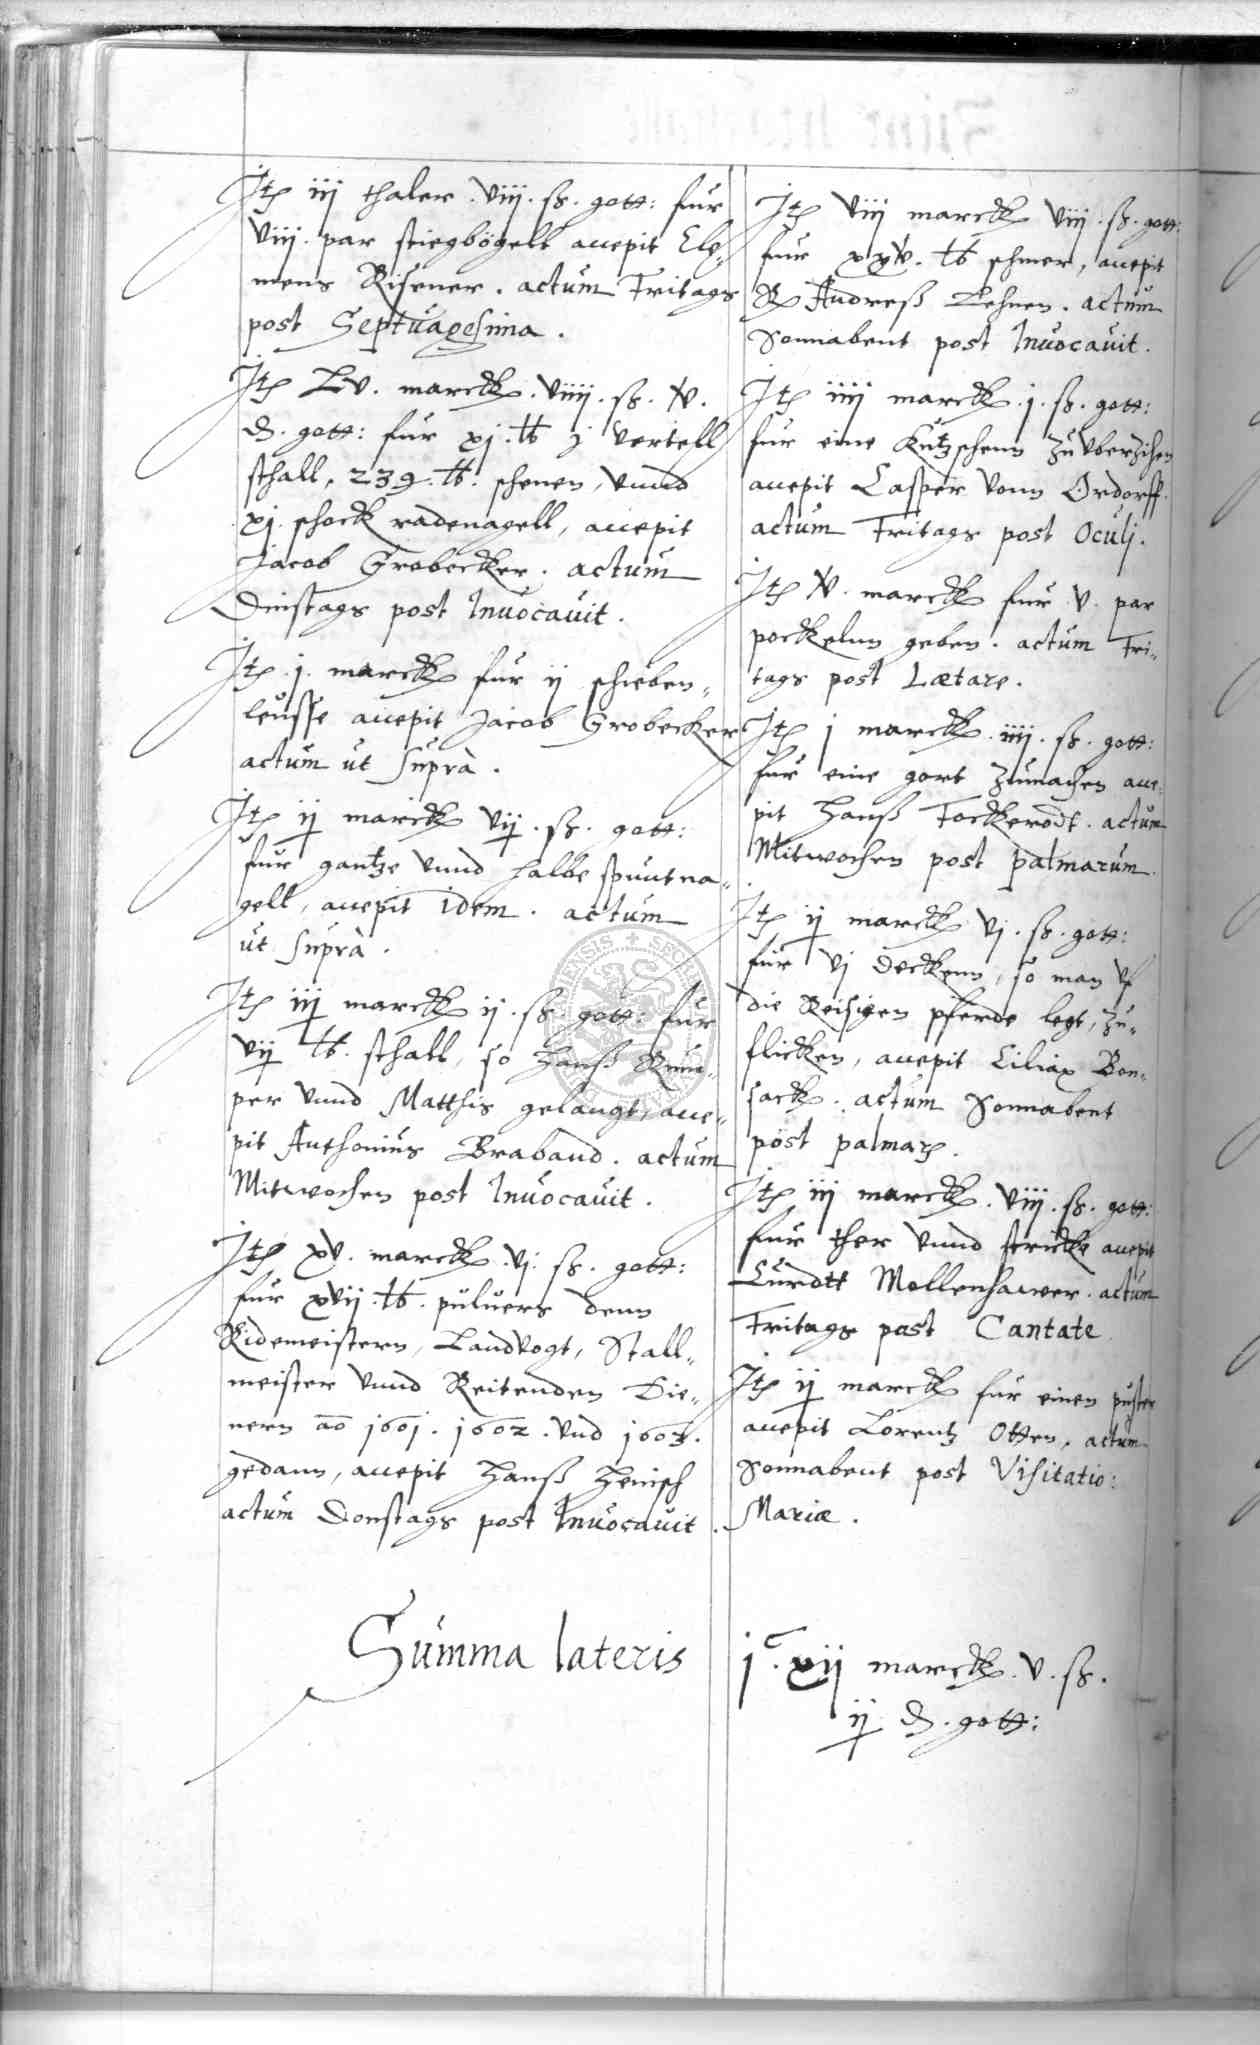 Itē iij thaler . viij . ß . gott: fur
viij . par stiegbögell accepit Cle„
mens Kisener . actum Fritags
post Septuagesima .
Itē Lv . marck . viiij . ß . v .
d . gott: fur xj . lb j vertell
sthall , 239 . lb . schenen , vnnd
xj . schock radenagell , accepit
Jacob Grobecker . actum
Dinstags post Invocavit .
Itē . j . marck fur ij schieben„
leusse accepit Jacob Grobecker
actum ut supra .
Itē ij marck vij . ß . gott:
fur gantze vnnd halbe spuntna„
gell , accepit idem . actum
ut supra .
Itē iij marck ij . ß . gott: fur
vij lb . sthall , so Hanß
per vnnd Matthis gelangt , acce„
pit Anthonius Braband . actum
Mitwochen post Invocavit .
Itē xv . marck . vj . ß . gott:
fur xvij . lb . puluers denn
Ridemeistern , Landvogt , Stall„
meister vnnd Reitenden Die„
nern ao 1601 . 1602 . vnd 1603 .
gedann , accepit Hanß Henisch
actum Donstags post Invocavit .
Summa lateris
Itē viij marck viij . ß . gott:
fur xxv . lb schmer , accepit
Andreß Lehnen . actum
Sonnabent post Invocavit .
Itē iiij marck . j . ß . gott:
fur eine Kutzschenn zu vberzihen
accepit Casper vonn Ordorff .
actum Fritags post Oculj .
Itē v . marck fur v . par
pockelnn geben . actum Fri„
tags post Lætare .
Itē j marck . iiij . ß . gott:
fur eine gort zumachen acce„
pit Hanß Fockerodt . actum
Mitwochen post palmarum .
Itē ij marck vj . ß . gott:
fur vj deckenn , so man vf
die Reisigen pferde legt , zu„
flicken , accepit Ciliax Bon„
sack . actum Sonnabent
post palmarū .
Itē iij marck . viij . ß . gott:
fur ther vnnd stricke accepit
Curdtt Mollenhawer . actum
Fritags post Cantate
Itē ij marck fur einen puster
accepit Lorentz Otten , actum
Sonnabent post Visitatio:
Mariæ .
jᶜ . xij marck . v . ß .
ij d . gott: